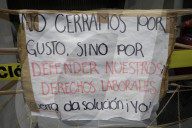 NO CERRAMOS POR
GUSTO, SINO POR
DEFENDER NUESTROS
DERECHOS LABORALES
da solución ¡Ya!